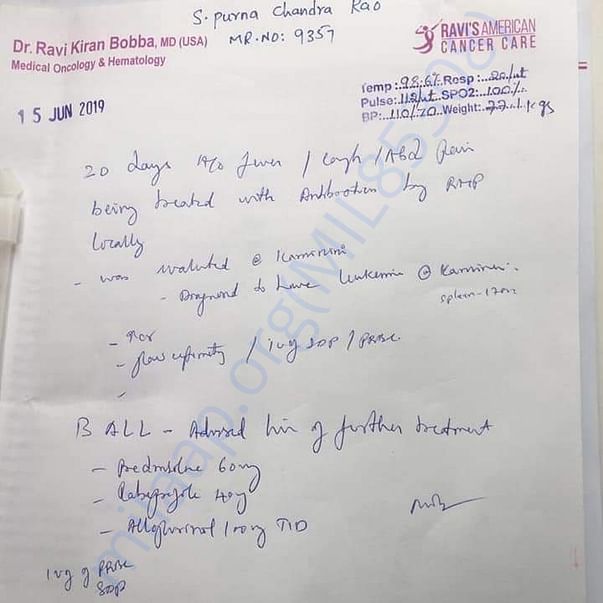 S. Purna Chandra Rao
MR.NO: 9357
Dr. Ravi Kiran Bobba, MD (USA)
Medical Oncology & Hematology
RAVI'S AMERICAN
CANCER CARE
15 JUN 2019
Temp: 98.6% Resp: 20/ut
Pulse: 112/ut SPO2: 100%
BP: 110/70 Weight: 22.1 kgs
20 days H/o fever / Cough / Abd Pain
being treated with Antibiotics by RMP
locally
- was evaluated @ Kamineni
- Diagnosed to have leukemia @ Kamineni.
spleen-17cm
- flow cytometry / 1ug SDP / PRBC
B ALL - Advised him of further treatment
- Prednisolne 60mg
- Rabeprazole 40mg
- Allopurinol 100mg TID
1ug g PRBC
SDP
milaap.org(MIL85598)